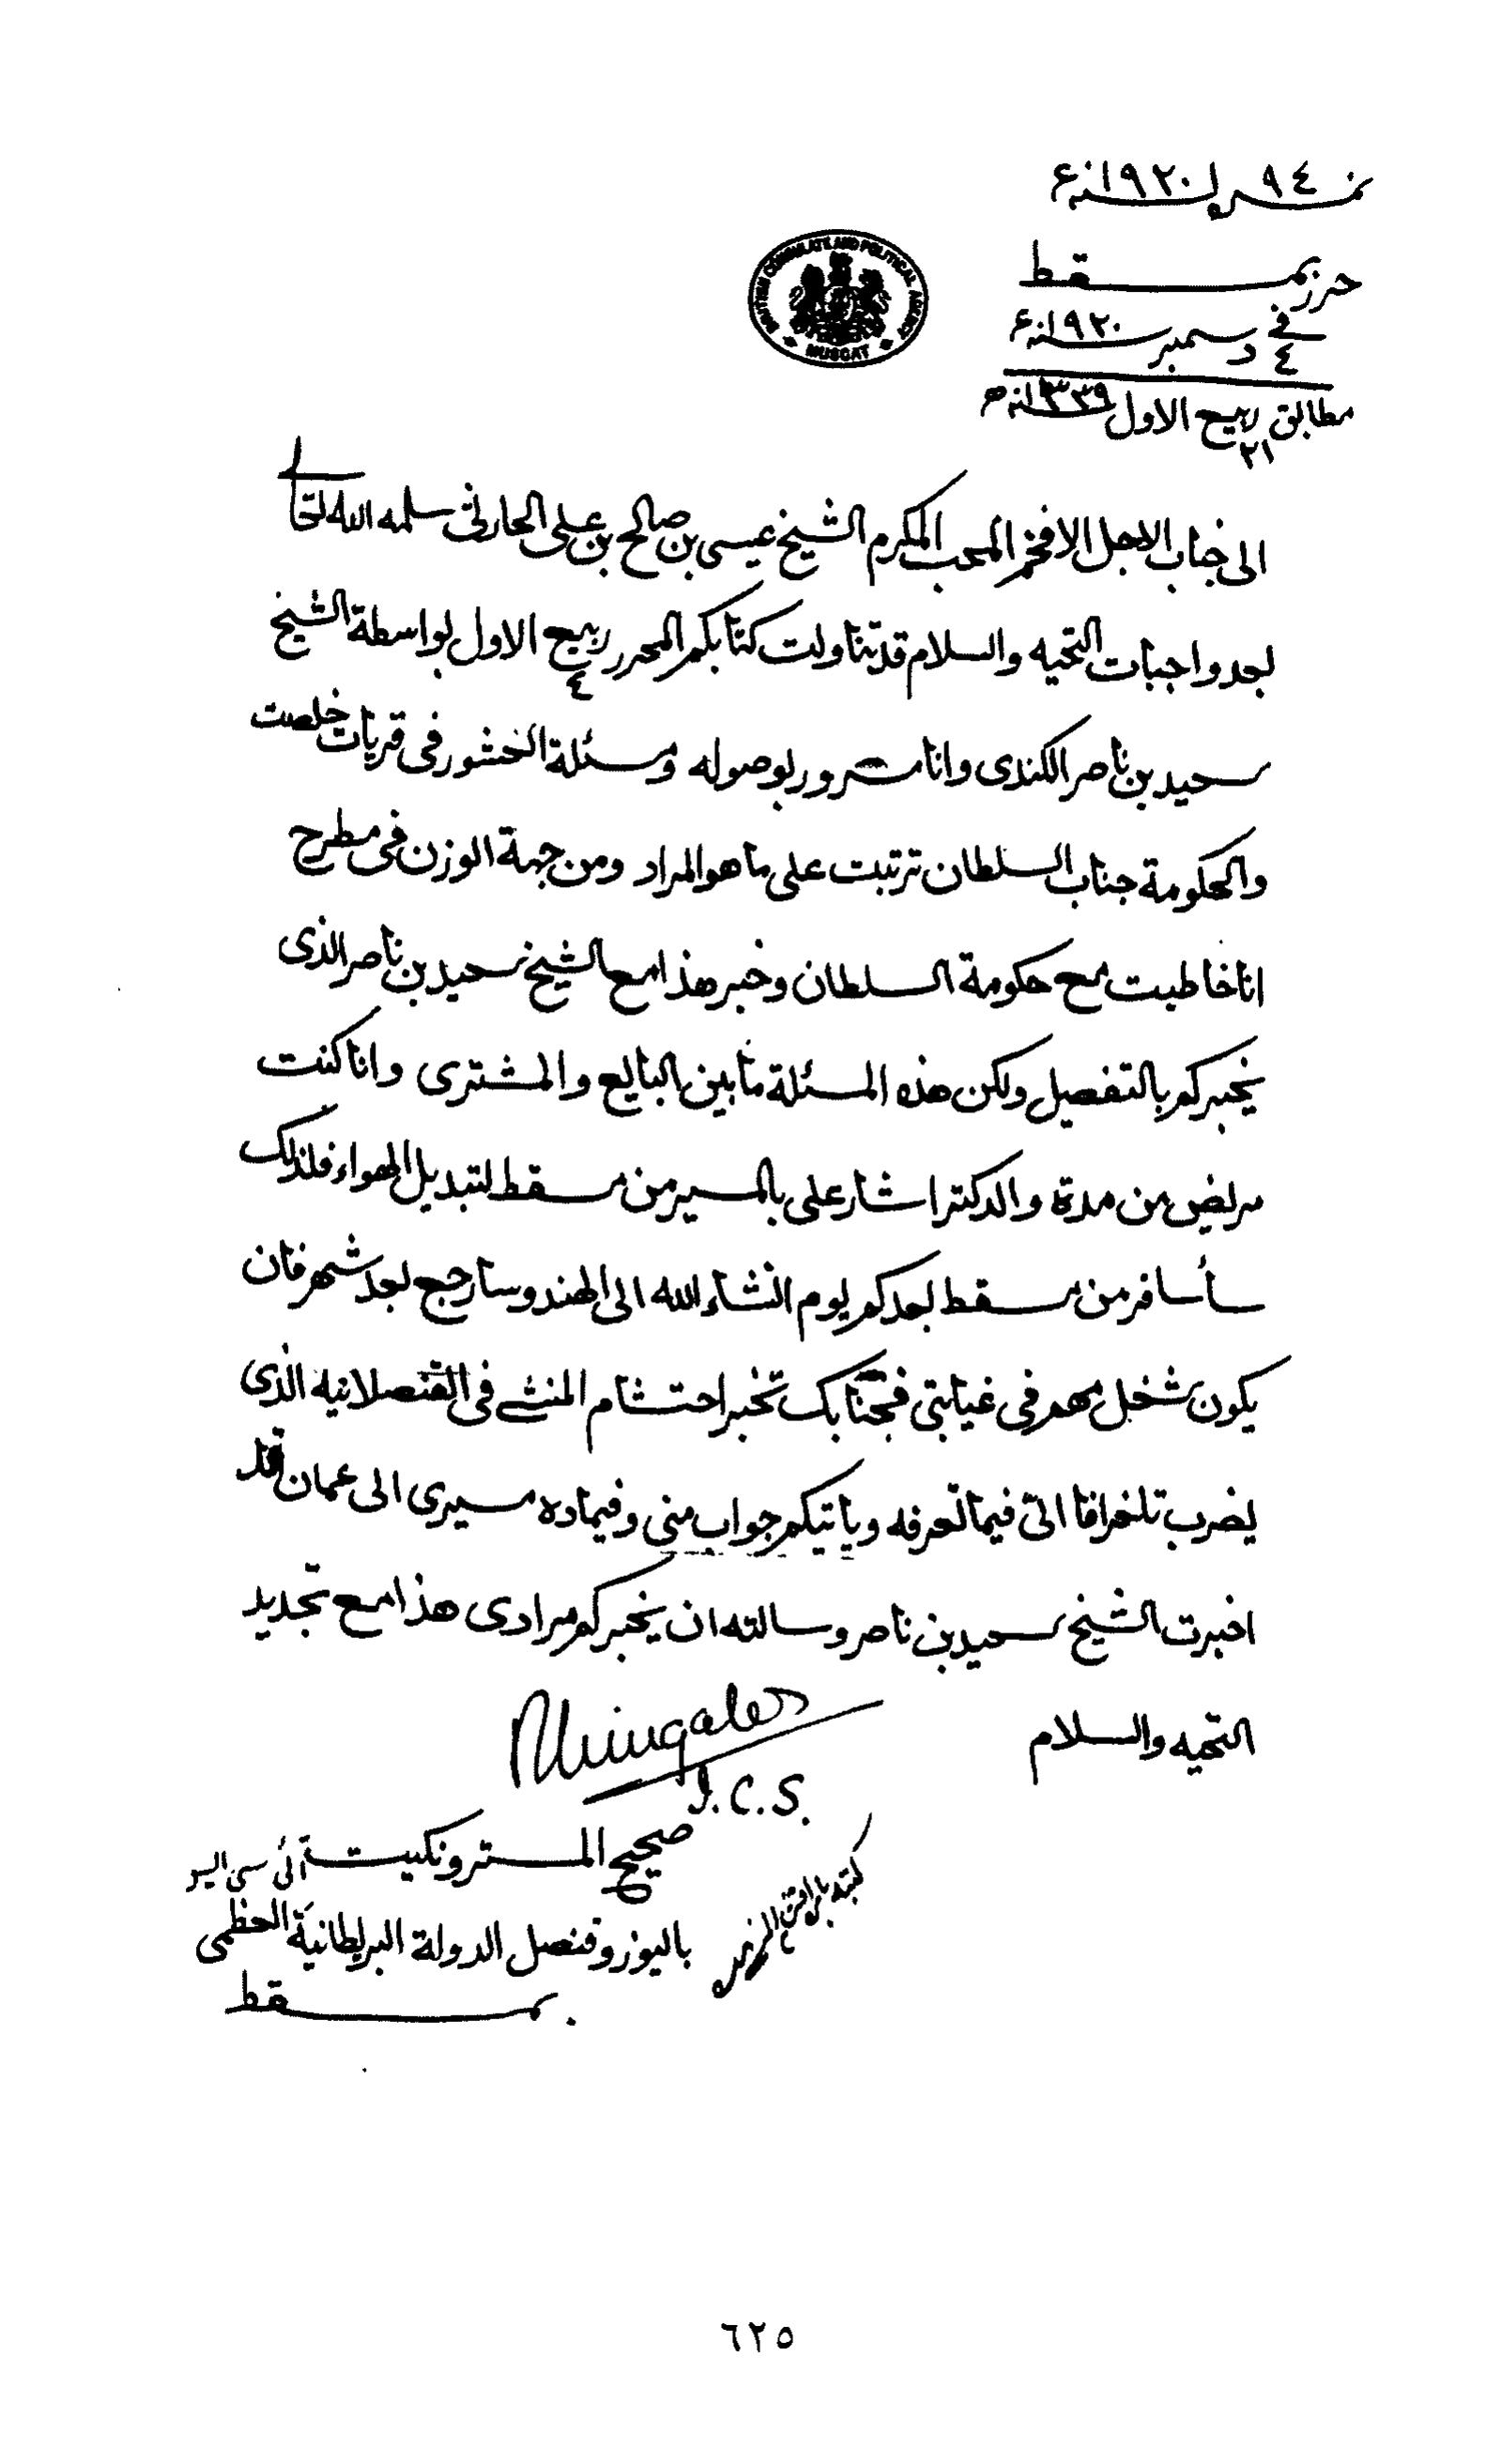 نمره ٩٤ سنه ١٩٢٠ء
BRITISH CONSULATE AND POLITICAL AGENCY
MUSCAT
حرر بمسقط
في ٤ دسمبر سنه ١٩٢٠ء
مطابق ٢١ ربيع الاول سنه ١٣٣٩ه
الى جناب الاجل الافخم المحب المكرم الشيخ عيسى بن صالح بن علي الحارثي سلمه الله تعالى
بعد واجبات التحيه والسلام قد تناولت كتابكم المحرر ٤ ربيع الاول بواسطة الشيخ
سعيد بن ناصر الكندى وانا مسرور بوصوله ومسئلة العشور في قريات خلصت
والحكومة جناب السلطان ترتبت على ما هو المراد ومن جهة الوزن في مطرح
انا خاطبت مع حكومة السلطان وخبر هذا مع الشيخ سعيد بن ناصر الذى
يخبركم بالتفصيل ولكن هذه المسئلة ما بين البايع والمشترى وانا كنت
مريض من مدة والدكتر اشار على بالمسير من مسقط لتبديل الهواء فلذلك
سأسافر من مسقط بعدكم يوم انشاء الله الى الهند وسارجع بعد شهر فان
يكون شغل مهم في غيابتي فجنابك تخبر احتشام المنشي في القنصلانيه الذى
يضرب تلغرافا الي فيما تعرفه وياتيكم جواب مني وفيماده مسيرى الى عمان قد
اخبرت الشيخ سعيد بن ناصر وسالته ان يخبركم مرادى هذا مع تجديد
التحيه والسلام
RWingate
I.C.S.
صحيح المستر ونكيت آئى سى ايس
باليوز وقنصل الدولة البريطانية العظمى
بمسقط
٦٢٥